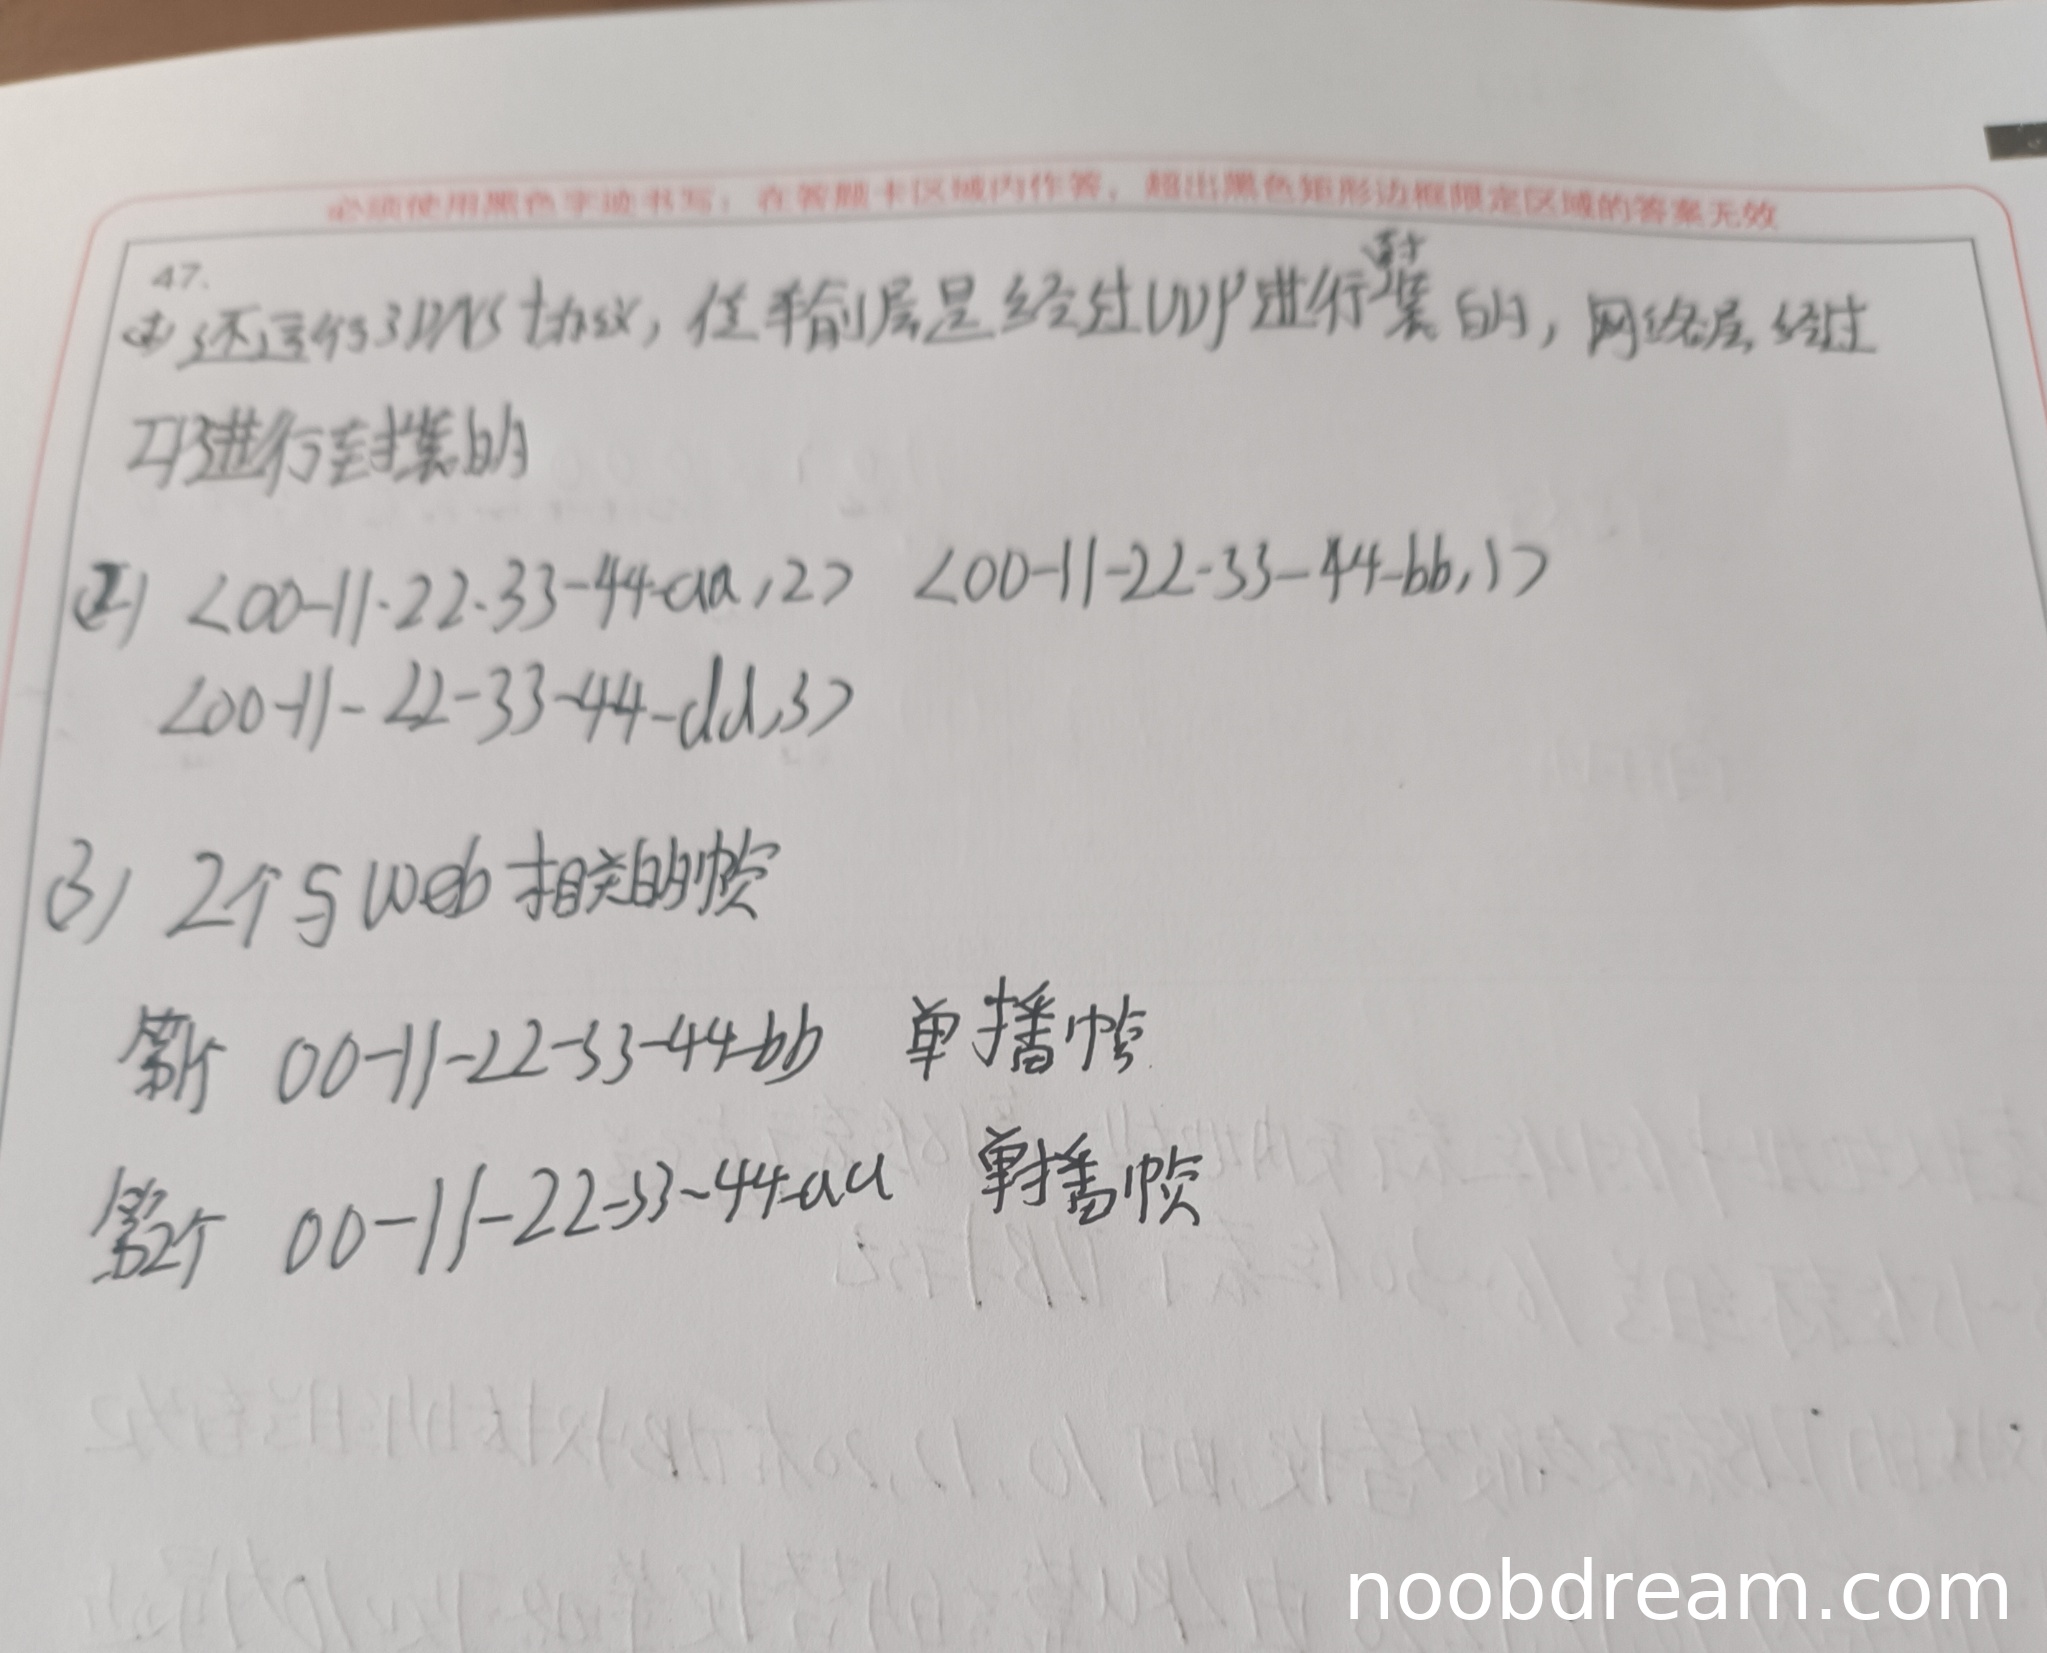 必须使用黑色字迹书写，在答题卡区域内作答，超出黑色矩形边框限定区域的答案无效
47.
(1) 还运行了DNS协议，传输层是经过UDP进行封装的，网络层经过
IP进行封装的
(2) <00-11-22-33-44-aa,2> <00-11-22-33-44-bb,1>
<00-11-22-33-44-dd,3>
(3) 2个与web相关的帧
第1个 00-11-22-33-44-bb 单播帧
第2个 00-11-22-33-44-aa 单播帧
noobdream.com